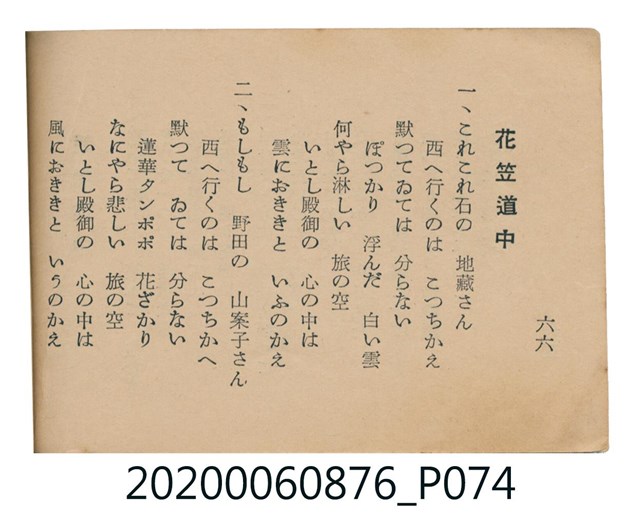 六六
花笠道中
一、これこれ石の 地藏さん
西へ行くのは こつちかえ
默つてゐては 分らない
ぽつかり 浮んだ 白い雲
何やら淋しい 旅の空
いとし殿御の 心の中は
雲におききと いふのかえ
二、もしもし 野田の 山案子さん
西へ行くのは こつちかへ
默つて ゐては 分らない
蓮華タンポポ 花ざかり
なにやら悲しい 旅の空
いとし殿御の 心の中は
風におききと いうのかえ
20200060876_P074